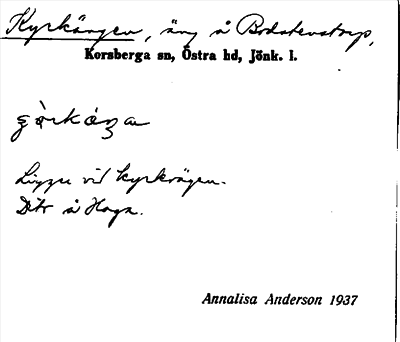 Kyrkängen, äng å Bodstenstorp,
Korsberga sn, Östra hd, Jönk. l.
Ligger vid kyrkvägen.
D:o å Haga.
Annalisa Anderson 1937